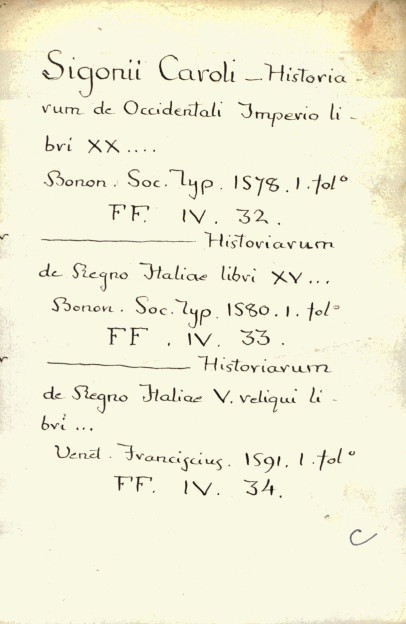 Sigonii Caroli - Historia-
rum de Occidentali Imperio li-
bri XX....
Bonon. Soc. Typ. 1578. 1. folº
FF. IV. 32.
——— Historiarum
de Regno Italiae libri XV...
Bonon. Soc. Typ. 1580. 1. folº
FF. IV. 33.
——— Historiarum
de Regno Italiae V. reliqui li-
bri...
Venet. Franciscius. 1591. 1. folº
FF. IV. 34.
C